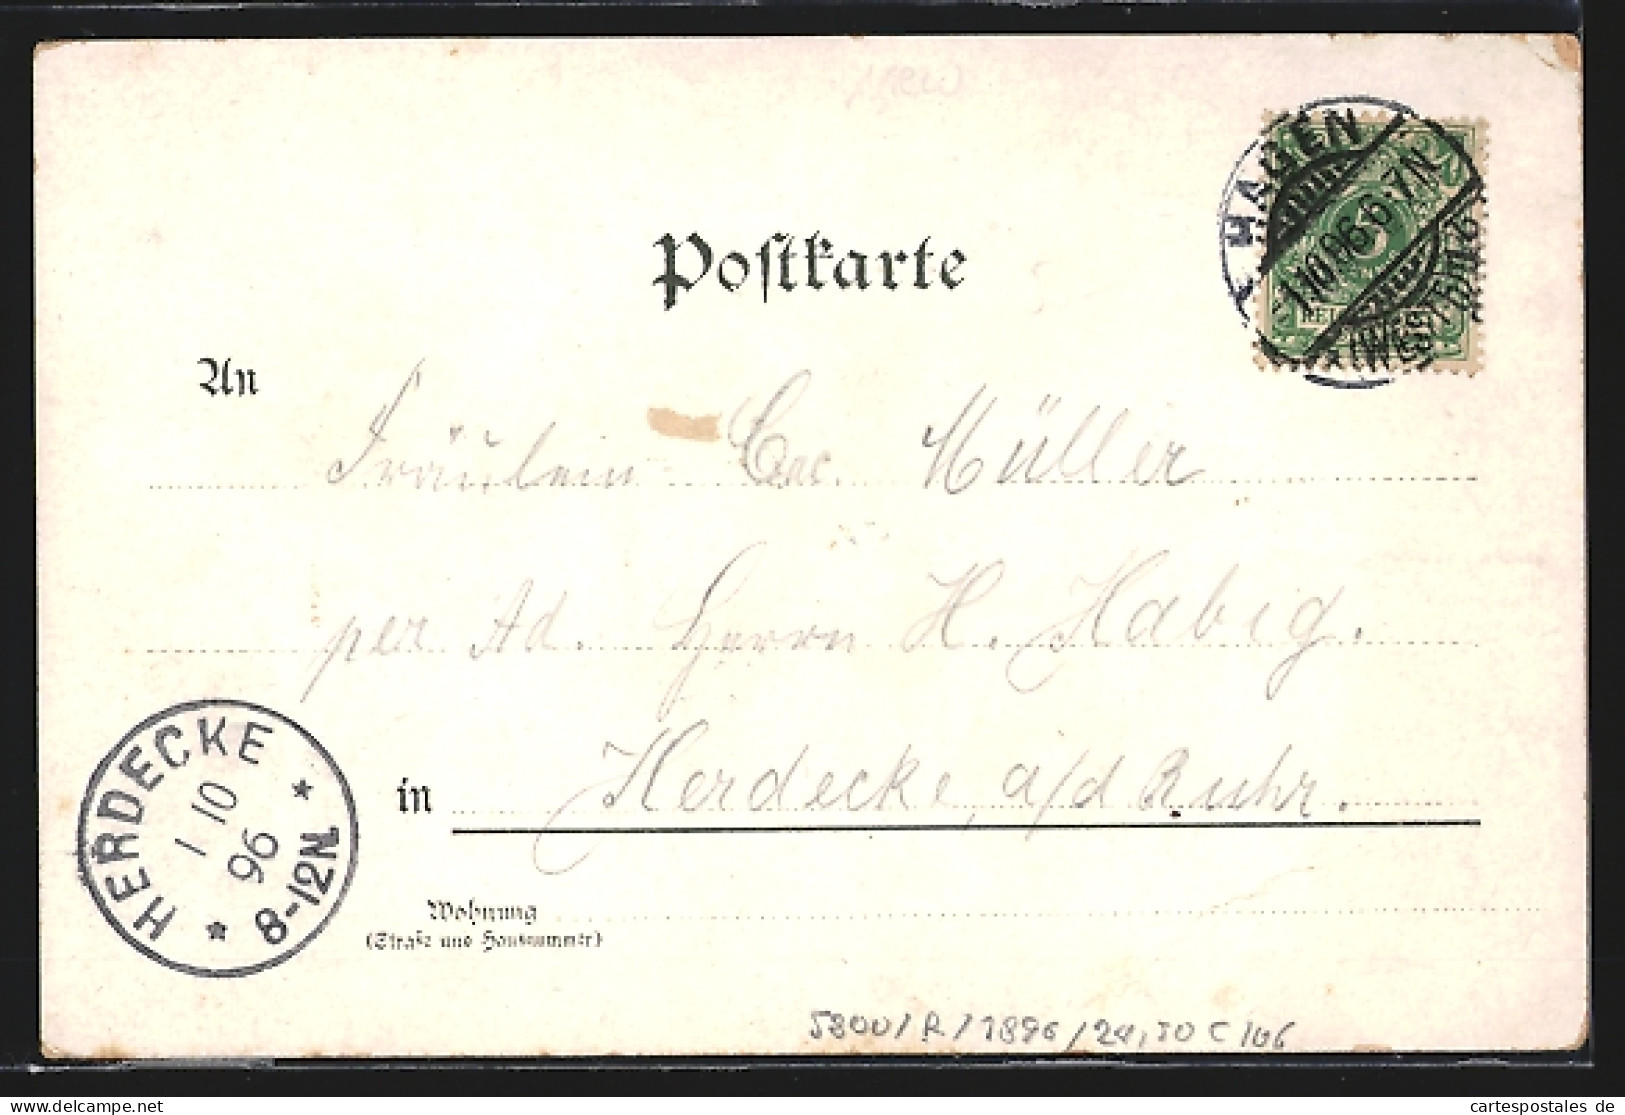 Postkarte
HAGEN
1.10.96.6-7N
* (WESTF.)
5
An
Fräulein Müller
per Ad. Herrn H. Habig.
in Herdecke a/d Ruhr.
HERDECKE
1 10
96
* 8-12N. *
Wohnung
(Straße und Hausnummer)
5800/R/1896/24,50 C/06
delcampe.net
cartespostales de